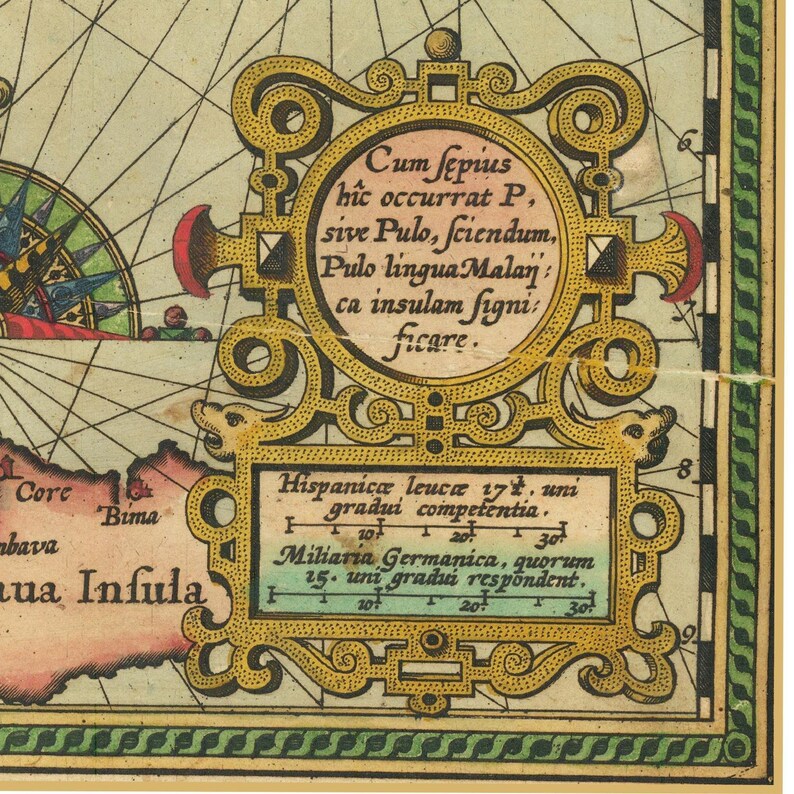 Cum ſepius
hîc occurrat P,
sive Pulo, ſciendum,
Pulo lingua Malaij:
ca insulam ſigni:
ficare.
6
7
8
9
Hispanicæ leucæ 17½ uni
gradui competentia.
10 20 30
Miliaria Germanica, quorum
15. uni gradui respondent.
10 20 30
Core
Bima
Inſula